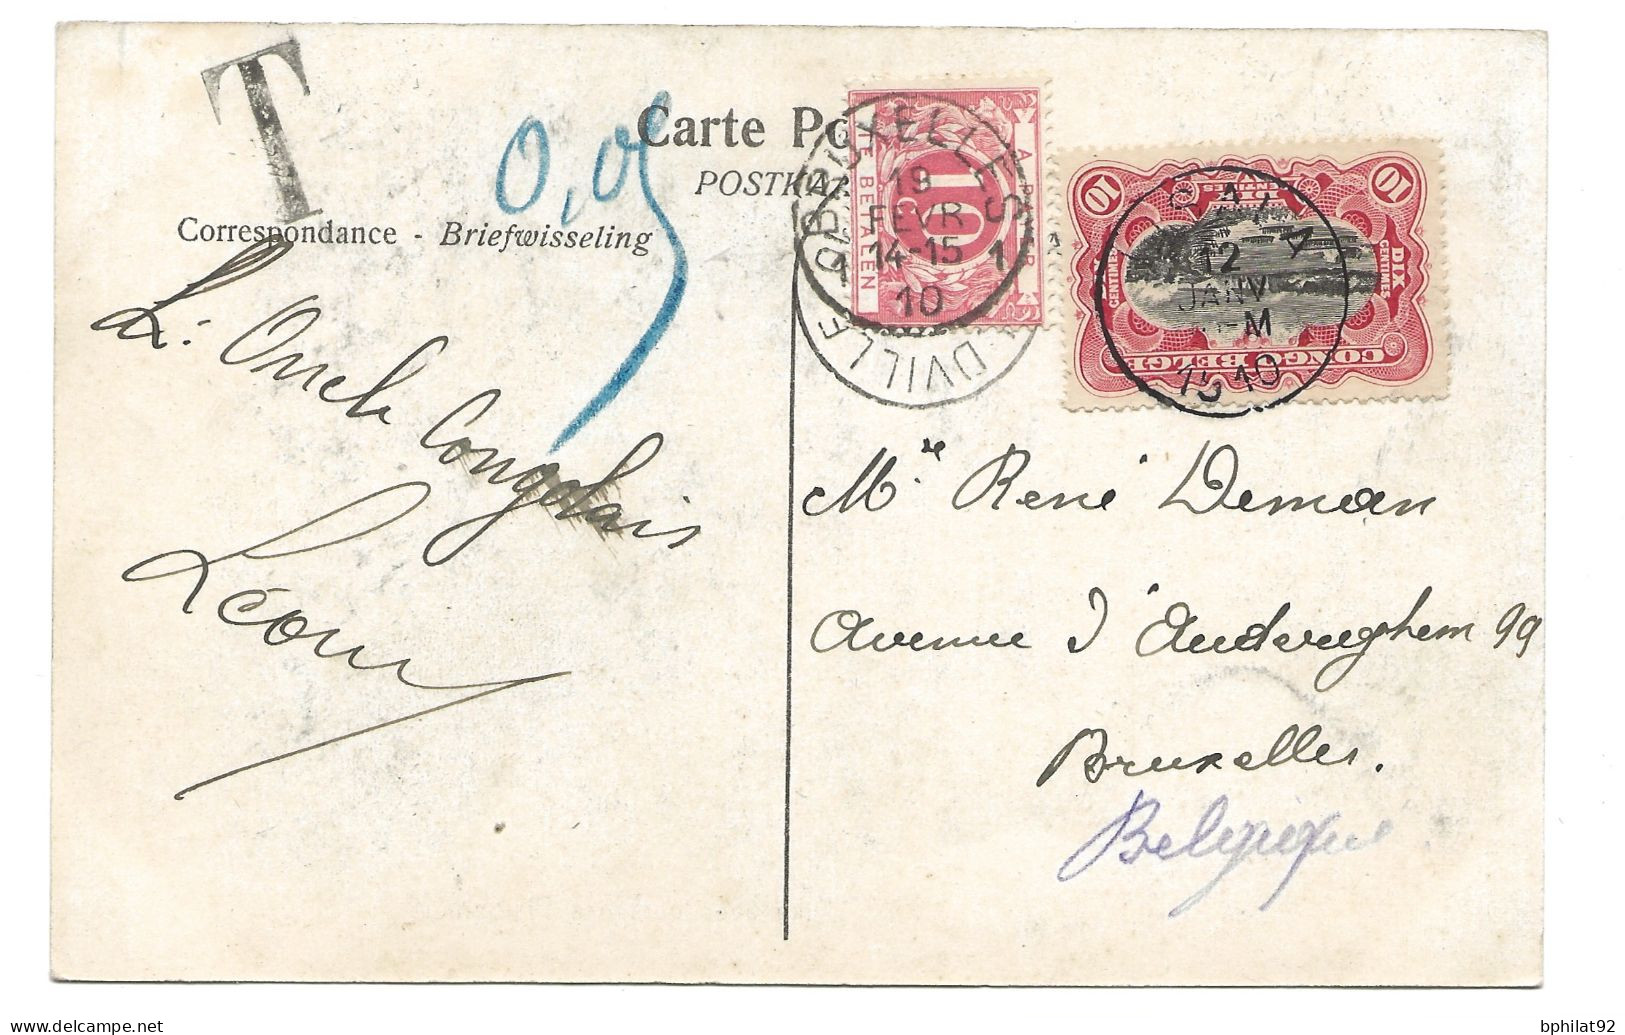 T
0,05
Carte Po
POSTKA
Correspondance - Briefwisseling
L'Oncle Congolais
Léon
A PAYER
TE BETALEN
10
BRUXELLES
19
FEVR
14-15
1 1
10
DVILLE
10 10
DIX
CENTIMES
CENTIMES
CONGO BELGE
12
JANV
-M
1910
Mr René Deman
Avenue d'Auderghem 99
Bruxelles.
Belgique
bphilat92